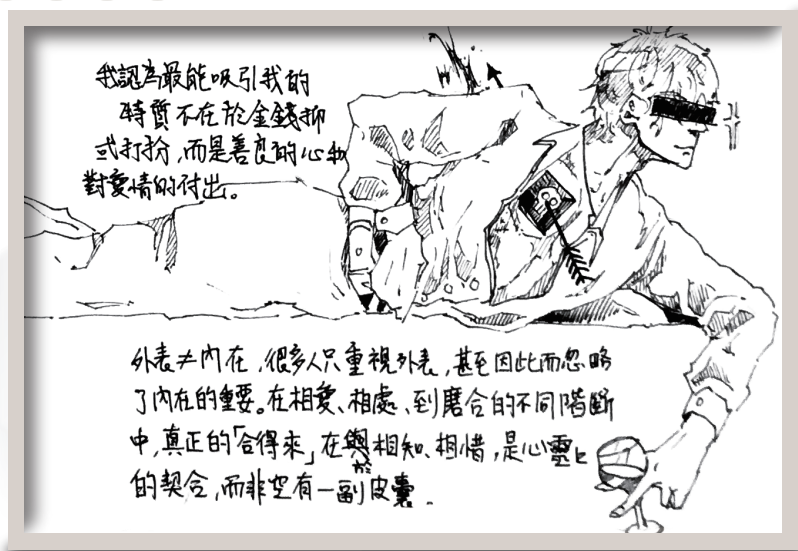 我認為最能吸引我的
特質不在於金錢抑
或打扮,而是善良的心和
對愛情的付出。
外表≠內在,很多人只重視外表,甚至因此而忽略
了內在的重要。在相愛、相處、到磨合的不同階斷
中,真正的「合得來」在於相知、相惜,是心靈上
的契合,而非空有一副皮囊.